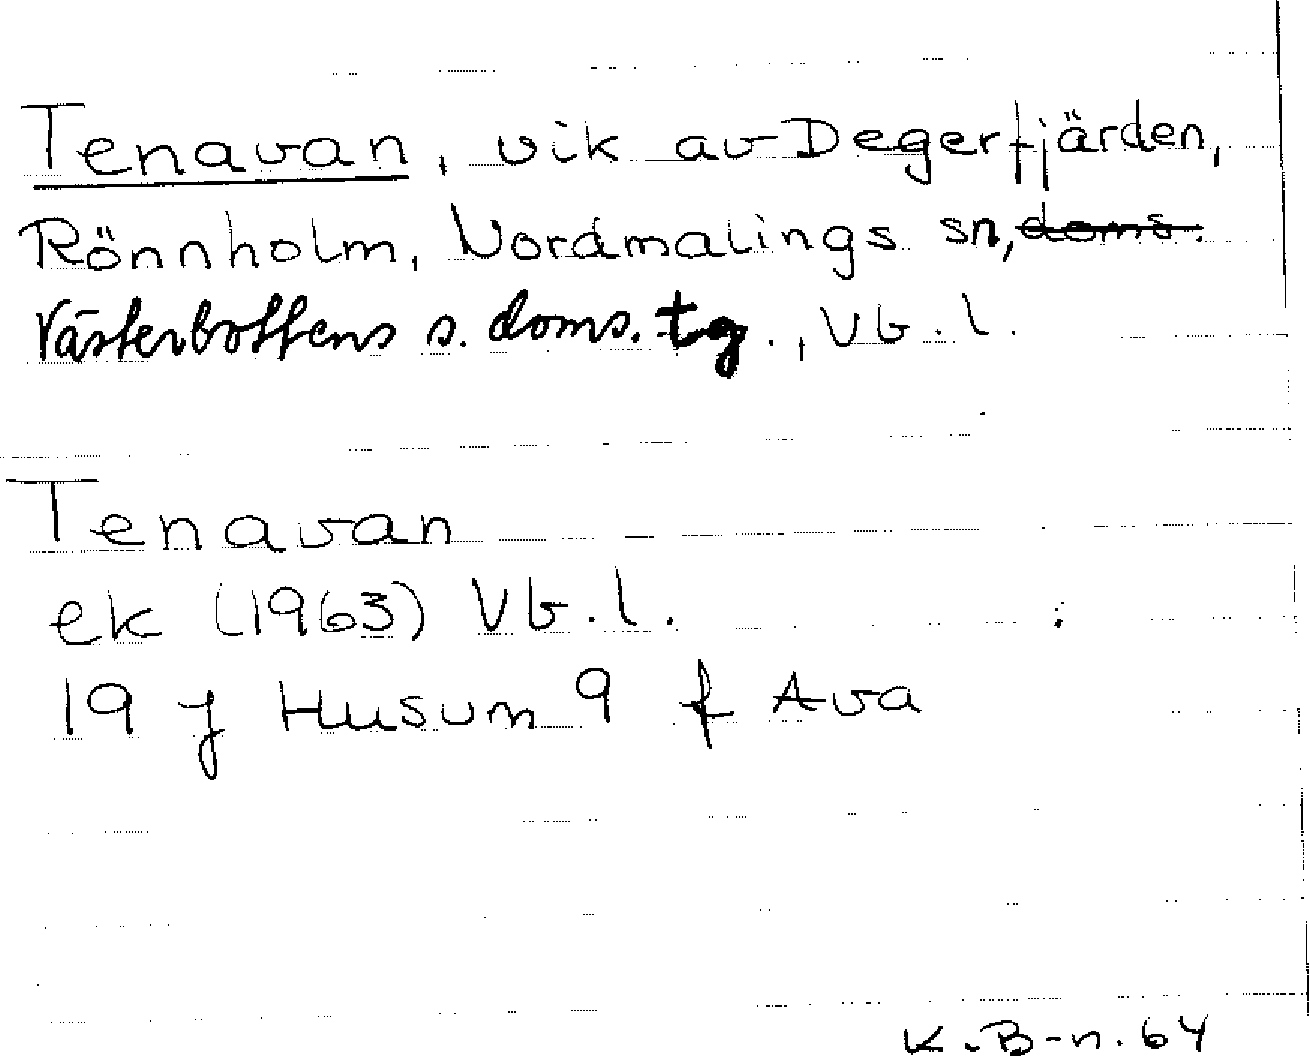 Tenavan, vik av Degerfjärden,
Rönnholm, Nordmalings sn, doms.
Västerbottens s. doms. tg., Vb.l.
Tenavan
ek (1963) Vb.l.
19 J Husum 9 f Ava
K.B-n. 64